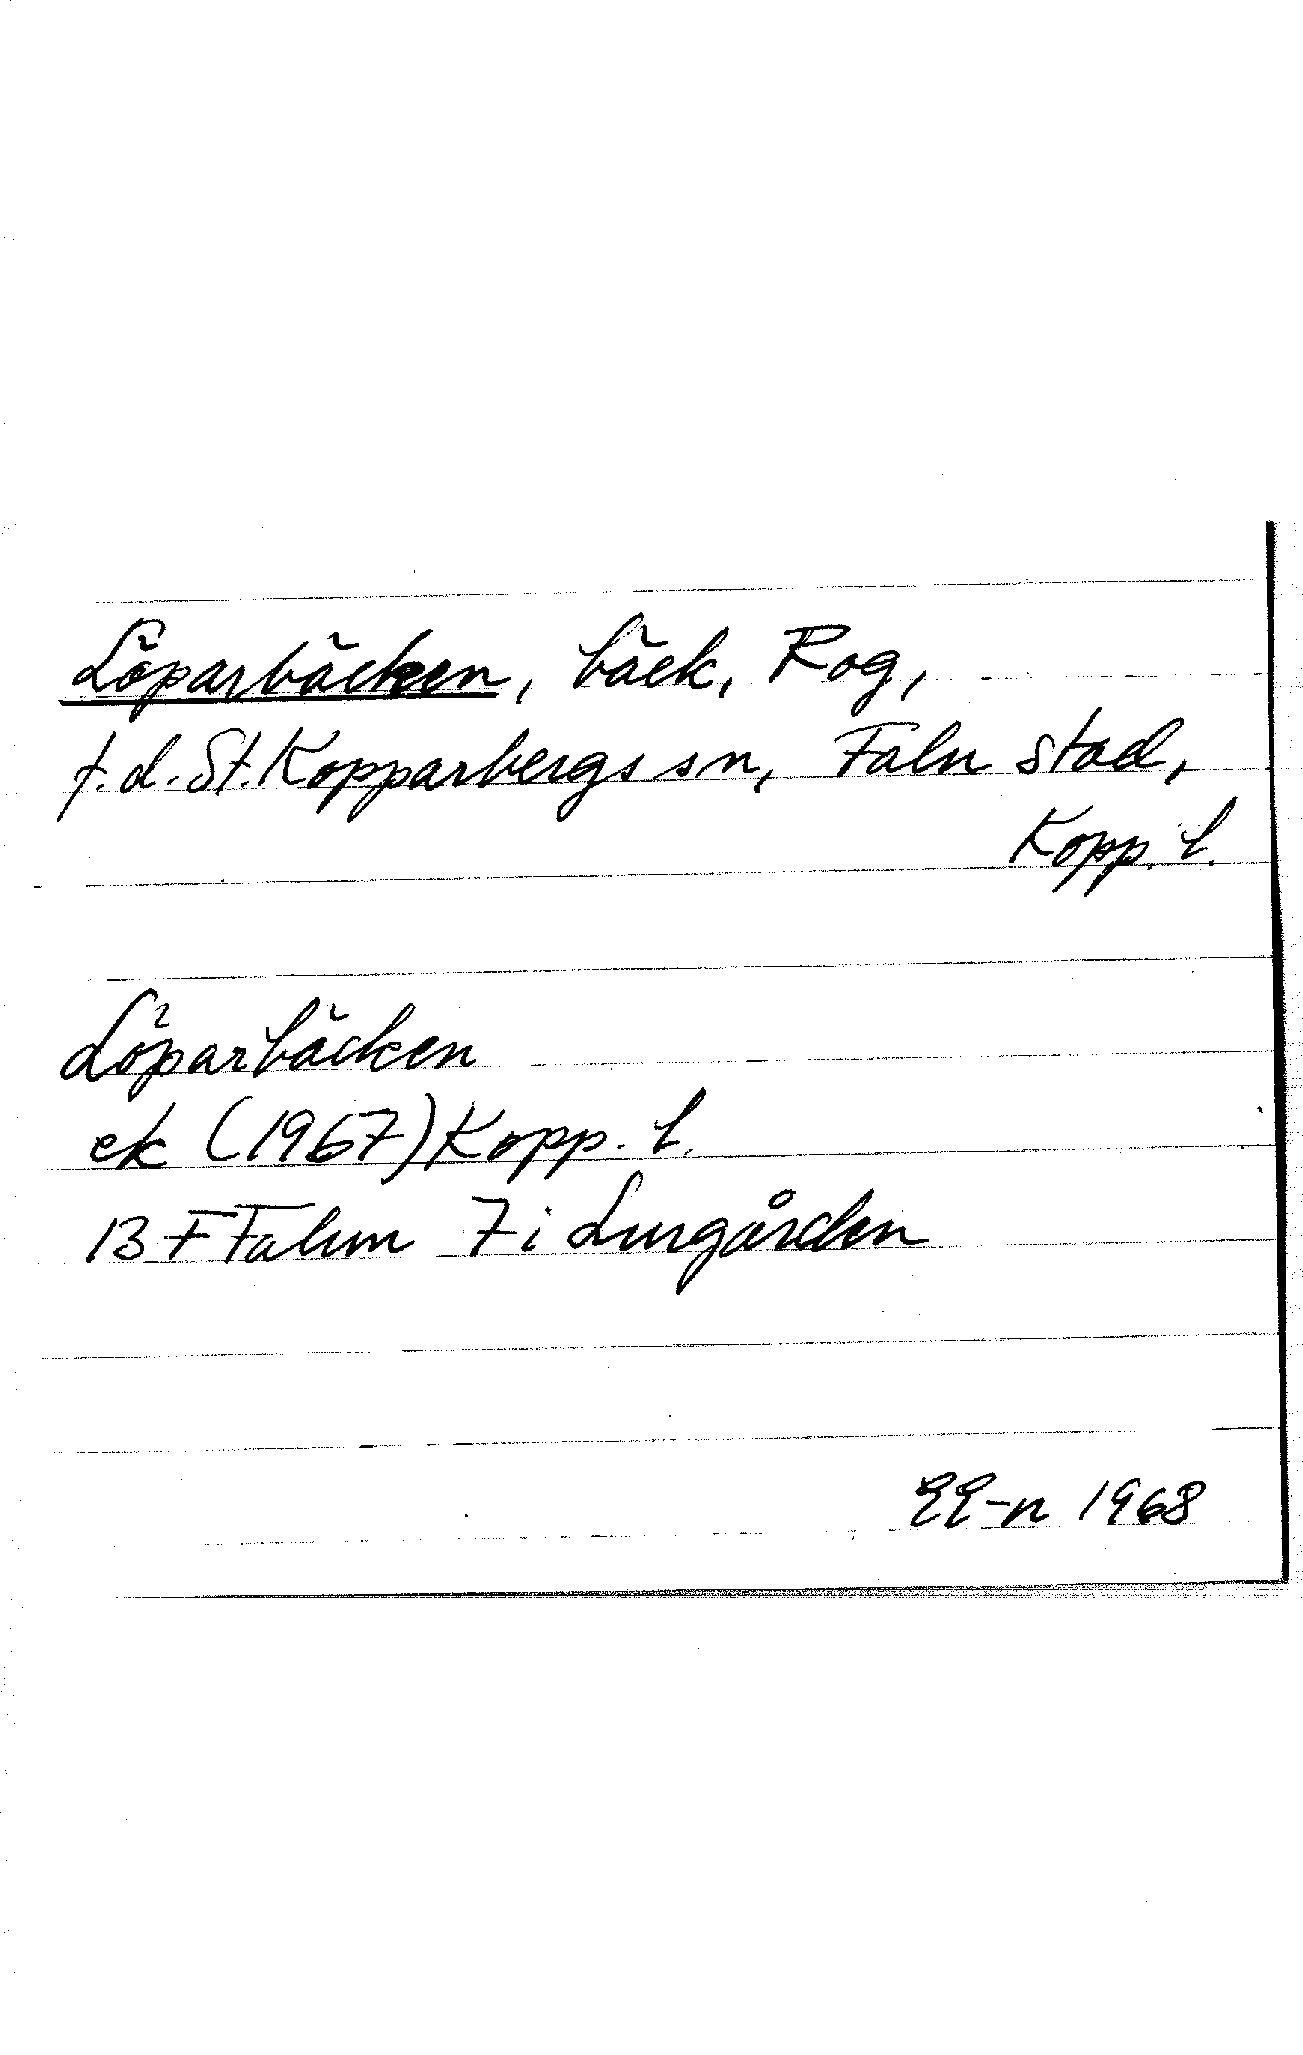 Löparbäcken, bäck, Rog,
f.d. St. Kopparbergs sn, Falu stad,
Kopp. l.
Löparbäcken
ek (1967) Kopp. l.
13 F Falun 7 i Lurgården
EE-n 1968